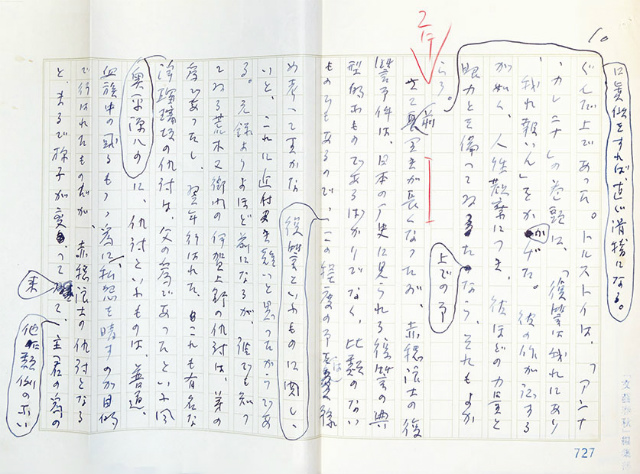 10
口真似をすれば、直ぐ滑稽になる。
ぐんだ上であった。トルストイは、「アンナ
カレニナ」の巻頭に、「復讐は我れにあり
我れ報いん」をかかげた。彼の作が証する
人性観察につき、彼ほどの力量と
眼力とを備へてゐたなら、それもよか
らう。
2行
上での予
さて前置きが長くなったが、赤穂浪士の復
讐事件は、日本の歴史に見られる復讐の典
型的なものであるばかりでなく、比類のない
ものでもあるので、この程度の予
め考へて置かな
復讐といふものに関し、
いと、これに近付き難いと思ったからであ
る。元禄よりよほど前になるが、誰でも知っ
てゐる荒木又右衛門の伊賀上野の仇討は、弟の
為であったし、翌年行はれた、これも有名な
浄瑠璃坂の仇討は、父の為であったといふ風
奥平源八の
に、仇討といふものは普通、
血族中の或るもの為に私怨を晴すのが目的
で行はれたものだが、赤穂浪士の仇討となる
と、まるで様子が変って来て、主君の為の
他に類例のない
727